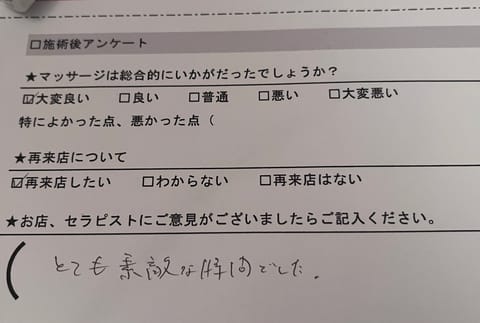 □施術後アンケート
★マッサージは総合的にいかがだったでしょうか？
☑大変良い □良い □普通 □悪い □大変悪い
特によかった点、悪かった点（
★再来店について
☑再来店したい □わからない □再来店はない
★お店、セラピストにご意見がございましたらご記入ください。
（とても素敵な時間でした.